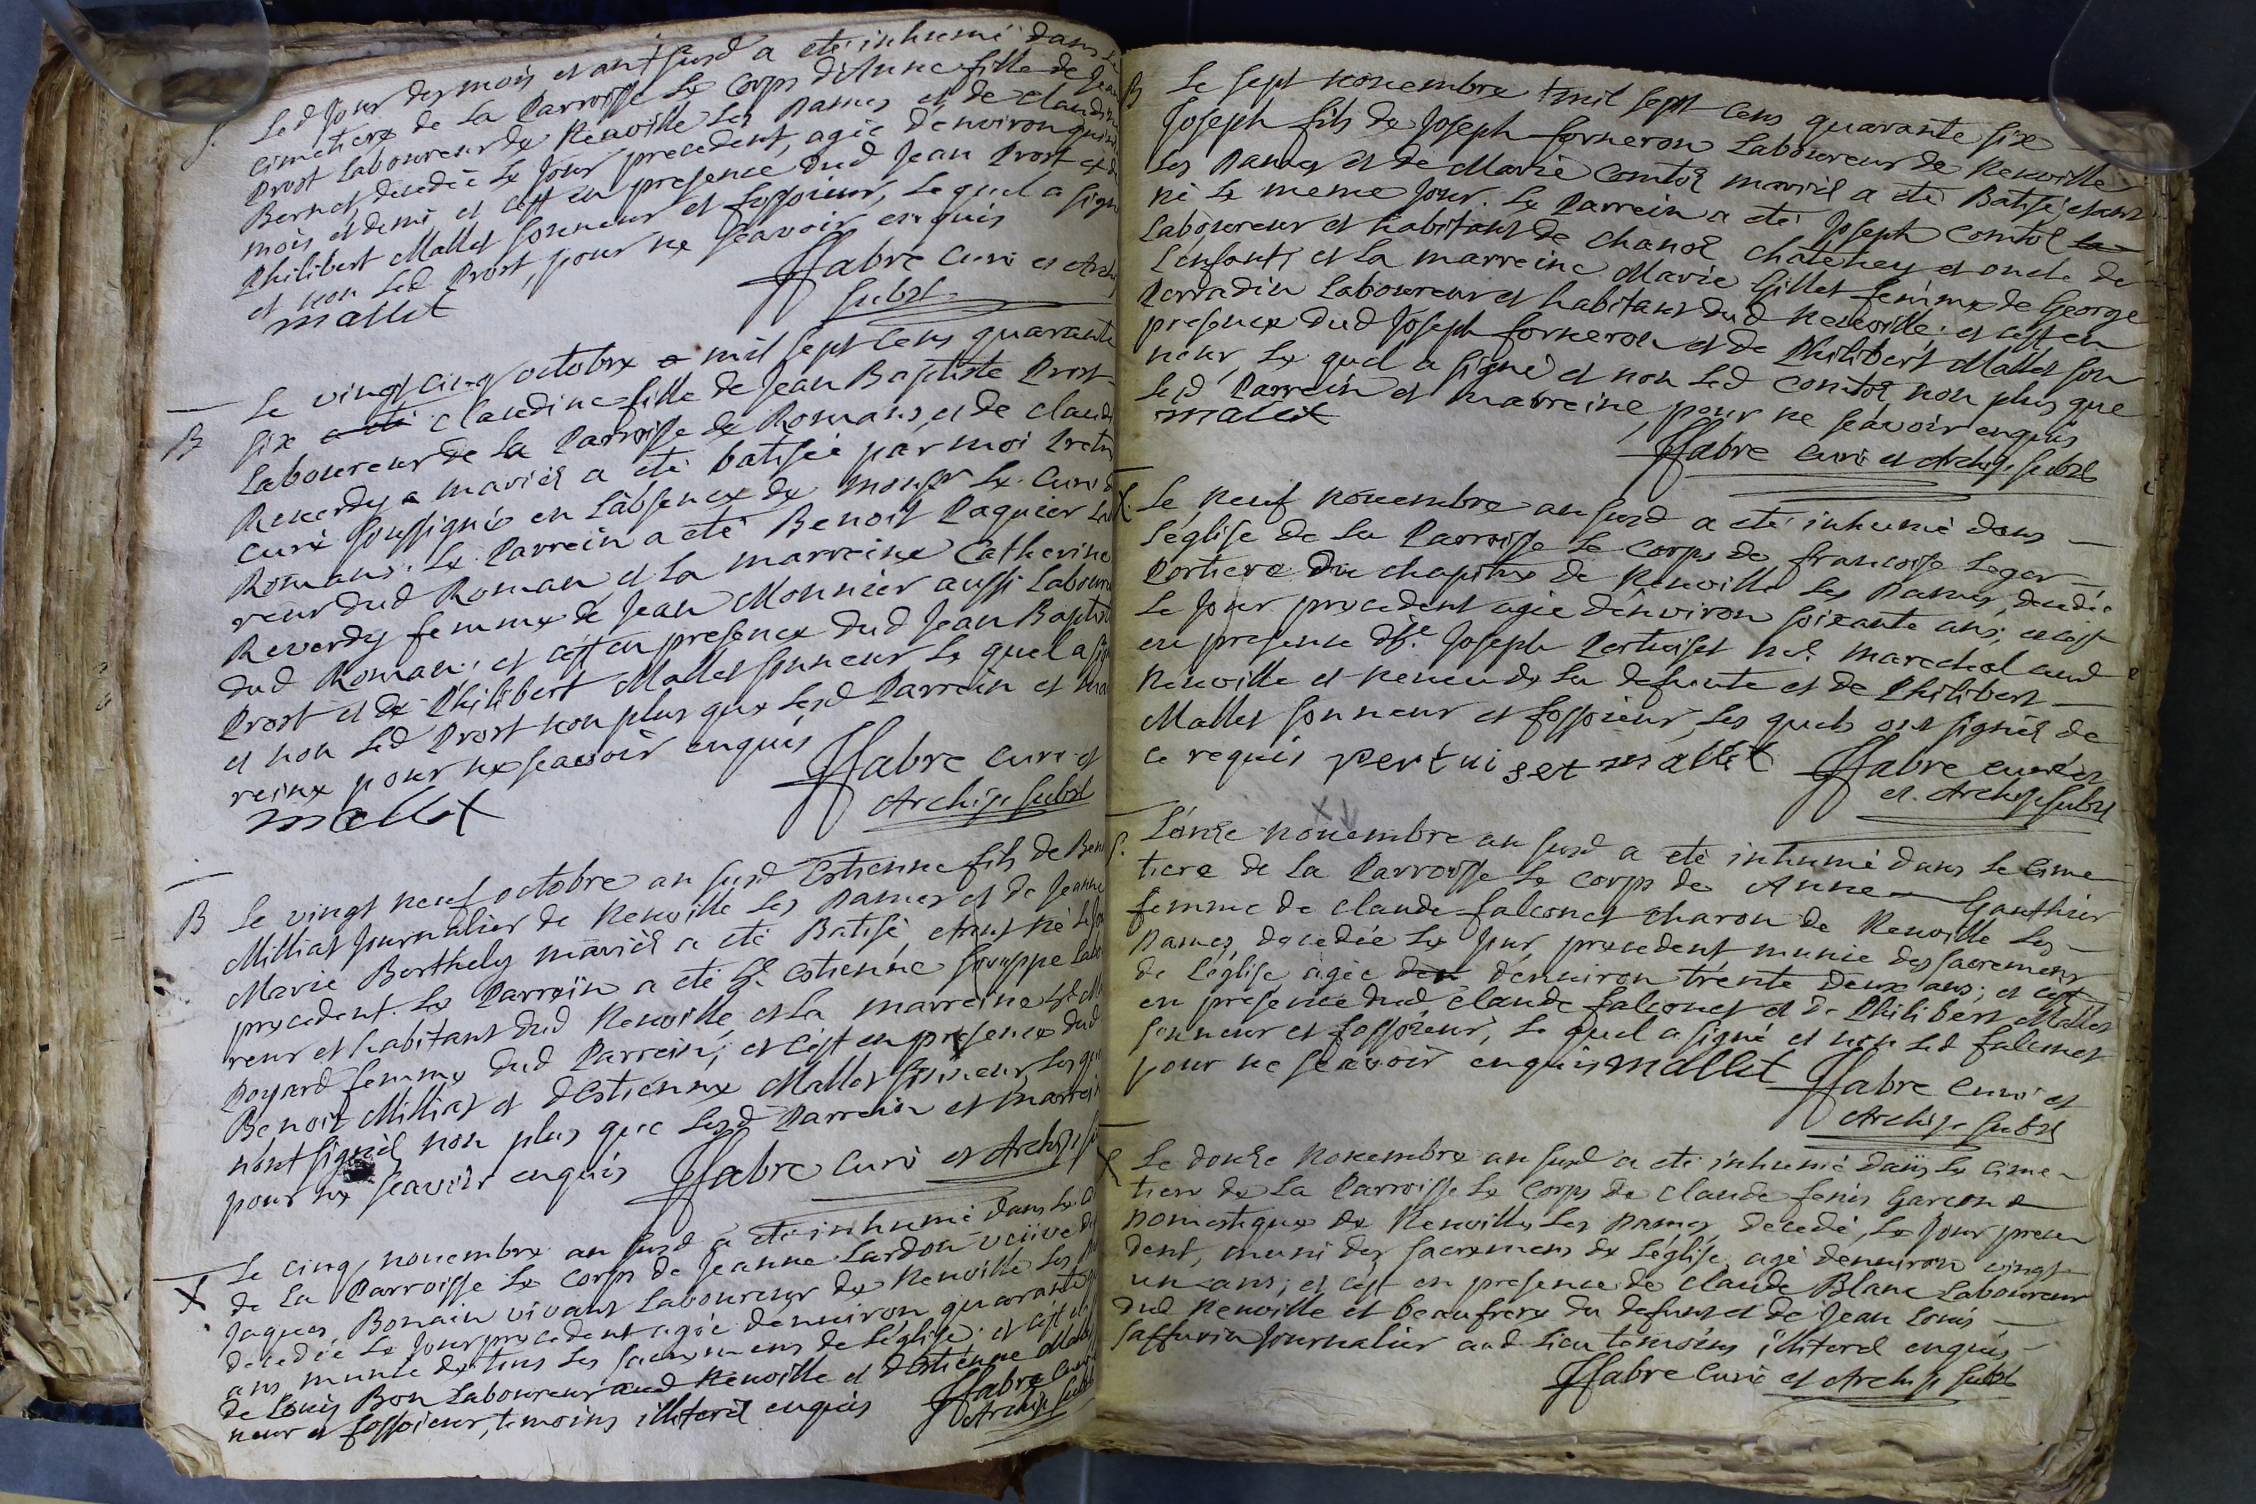 S. Led Jour des mois et an susd a eté inhumé dans le
cimetiere de la Parroisse le corps d'Anne fille de Jean
Prost Laboureur de Neuville les Dames et de claudine
Bernet, decedée le jour precedent, agée d'environ quinze
mois et demi et c'est en presence dud Jean Prost et de
Philibert Mallet sonneur et fossoieur, le quel a signé
et non led Prost, pour ne sçavoir enquis
mallet
ffabre curé et Archip
subst
B Le vingt cinq octobre mil sept cens quarante
six a eté claudine fille de Jean Baptiste Prost
Laboureur de la Parroisse de Romans, et de claudine
Reverdy mariés a eté batisée par moi Pretre
curé soussigné en l'absence de monsr le curé de
Romans. le Parrein a eté Benoit Paquier Labou
reur dud Roman, et la marreine Catherine
Reverdy femme de Jean Monnier aussi Laboureur
dud Roman, et c'est en presence dud Jean Baptiste
Prost et de Philibert Mallet sonneur le quel a signé
et non led Prost non plus que lesd Parrein et mar
reine pour ne sçavoir enquis
mallet
ffabre curé et
Archip subst
B Le vingt neuf octobre an susd Estienne fils de Benoit
Milliat journalier de Neuville les Dames et de Jeanne
Marie Berthely mariés a eté Batisé, etant né le jour
precedent. le Parrein a eté Estienne Labou
reur et habitant dud Neuville, et la marreine
Poyard femme dud Parrein, et c'est en presence dud
Benoit Milliat et d'Estienne Mallet sonneur les quels
n'ont signés non plus que lesd Parrein et marreine
pour ne sçavoir enquis ffabre curé et Archip
Le cinq novembre an susd a eté inhumé dans le ci
de la Parroisse le corps de Jeanne Lardon veuve de
Jaques Bonain vivant Laboureur de Neuville les
decedée le jour precedent agée d'environ quarante
ans munie de tous les sacremens de l'église. et c'est en
de Louis Bon Laboureur aud Neuville et d'Estienne Mallet
neur et fossoieur, temoins illiterés enquis ffabre curé
Archip subst
B Le sept novembre mil sept cens quarante six
Joseph fils de Joseph forneron Laboureur de Neuville
les Dames et de Marie Comtoz mariés a eté Batisé, etant
né le meme jour. le Parrein a eté Joseph Comtoz la
Laboureur et habitant de chanoz chatenay et oncle de
l'enfant, et la marreine Marie Gillet femme de George
Perradin Laboureur et habitant dud Neuville; et c'est en
presence dud Joseph forneron et de Philibert Mallet son
neur, le quel a signé et non led Comtoz non plus que
led Parrein et marreine, pour ne sçavoir enquis
mallet
ffabre curé et Archip subst
Le neuf novembre an susd a eté inhumé dans
l'église de la Parroisse le corps de francoise Leger
Portiere du chapitre de Neuville les Dames, decedée
le jour precedent agée d'environ soixante ans; et c'est
en presence de Joseph Pertuiset marechal aud
Neuville et neveu de la defunte et de Philibert
Mallet sonneur et fossoieur, les quels ont signés de
ce requis pertuiset mallet ffabre curé
et Archip subst
S. L'onze novembre an susd a eté inhumé dans le cime
tiere de la Parroisse le corps de Anne Gauthier
femme de claude falconet charon de Neuville les
Dames, decedée le jour precedent, munie des sacremens
de l'église agée d'environ trente deux ans; et c'est
en presence dud claude falconet et de Philibert Mallet
sonneur et fossoieur, le quel a signé et non led falconet
pour ne sçavoir enquis mallet ffabre curé et
Archip subst
Le douze novembre an susd a eté inhumé dans le cime
tiere de la Parroisse le corps de claude fenis Garcon
Domestique de Neuville les Dames, decedé, le jour prece
dent, muni des sacremens de l'église, agé d'environ vingt
un ans; et c'est en presence de claude Blanc Laboureur
dud Neuville et beaufrere du defunt et de Jean Louis
saffurin journalier aud lieu temoins illiterés enquis
ffabre curé et Archip subst